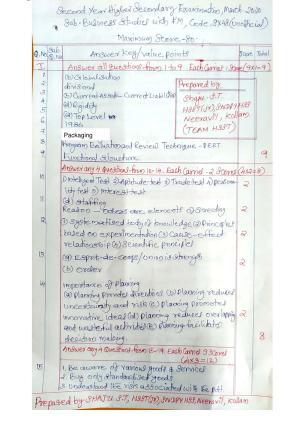 Second Year Higher Secondary Examination March 2020
Sub-Business Studies with FM, Code SY48 (unofficial)
Maximum Score-80
Q.No Sub Q.No Answer key/value points Score Total
I Answer all questions from 1 to 9 Each Carries 1 Score (9x1=9)
1 (a) Globalisation
2 dividend
3 (c) Current Assets - Current Liabilities
(a) Rigidity
(a) Top Level
1986
Prepared by
Shaju.S.T
HSST(Jr) SNDPYHSS
Neeravil, Kollam
(TEAM HSST)
Packaging
Program Evaluation and Review Technique - PERT
Functional Structure 9
Answer any 4 Questions from 10-14. Each Carries - 2 Scores (4x2=8)
(1) Intelligent Test (2) Aptitude test (3) Trade test (4) Personality test (5) Interest test 2
(d) Staffing
Reason - Others are elements of Directing 2
(1) Systematised body of knowledge (2) Principles
based on experimentation (3) Cause-effect
relationship (4) Scientific principles 2
13 (a) Esprit-de-corps/union is strength
(b) Order 2
14 Importance of Planning
(a) Planning provides directions (b) Planning reduces
uncertainity and risk (c) Planning promotes
innovative ideas (d) Planning reduces overlapping
and wasteful activities (e) Planning facilitates
decision making 2
8
Answer any 4 Questions from 15-19. Each Carries 3 Scores
(4x3=12)
15 1. Be aware of various goods & services
2. Buy only standardised goods
3. Understand the risk associated with the
Prepared by SHAJU.S.T, HSST(Jr), SNDPYHSS, Neeravil, Kollam